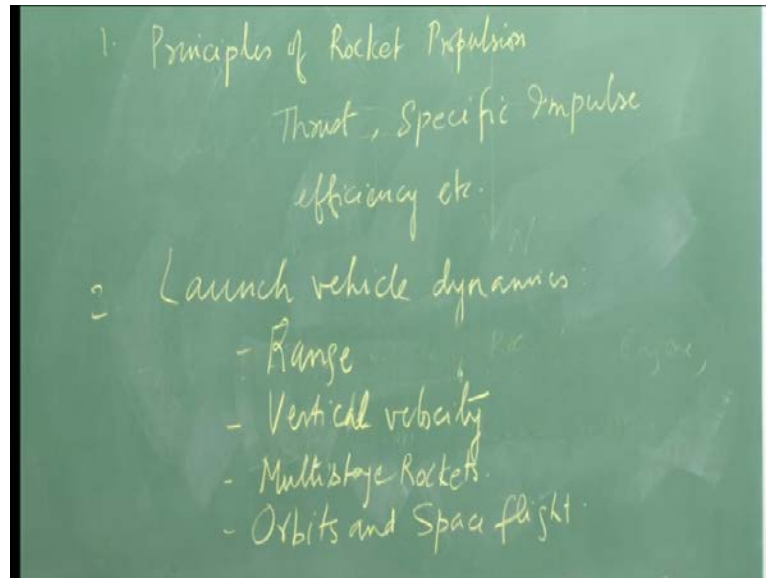 1. Principles of Rocket Propulsion
Thrust, Specific Impulse
efficiency etc.
2 Launch vehicle dynamics:
- Range
- Vertical velocity
- Multistage Rockets.
- Orbits and Space flight.